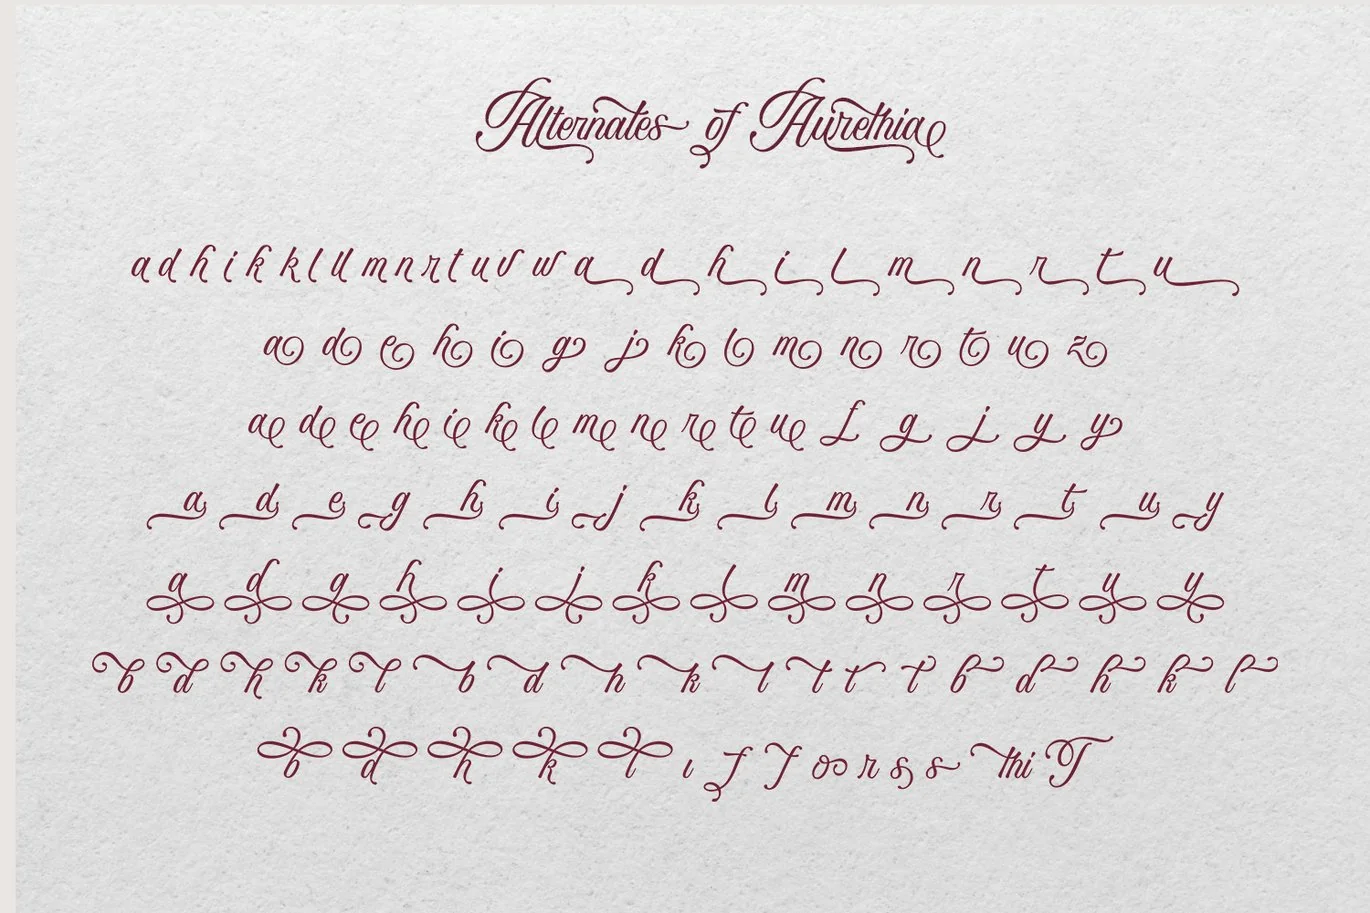 Alternates of Aurethia
a d h i k k l ll m n r t u v w a d h i l m n r t u
a d e h i g j k l m n r t u z
a d e h i k l m n r t u f g j y y
a d e g h i j k l m n r t u y
a d g h i j k l m n r t u y
b d h k l b d h k l t t t b d h k l
b d h k l ı f f o r s s thi T